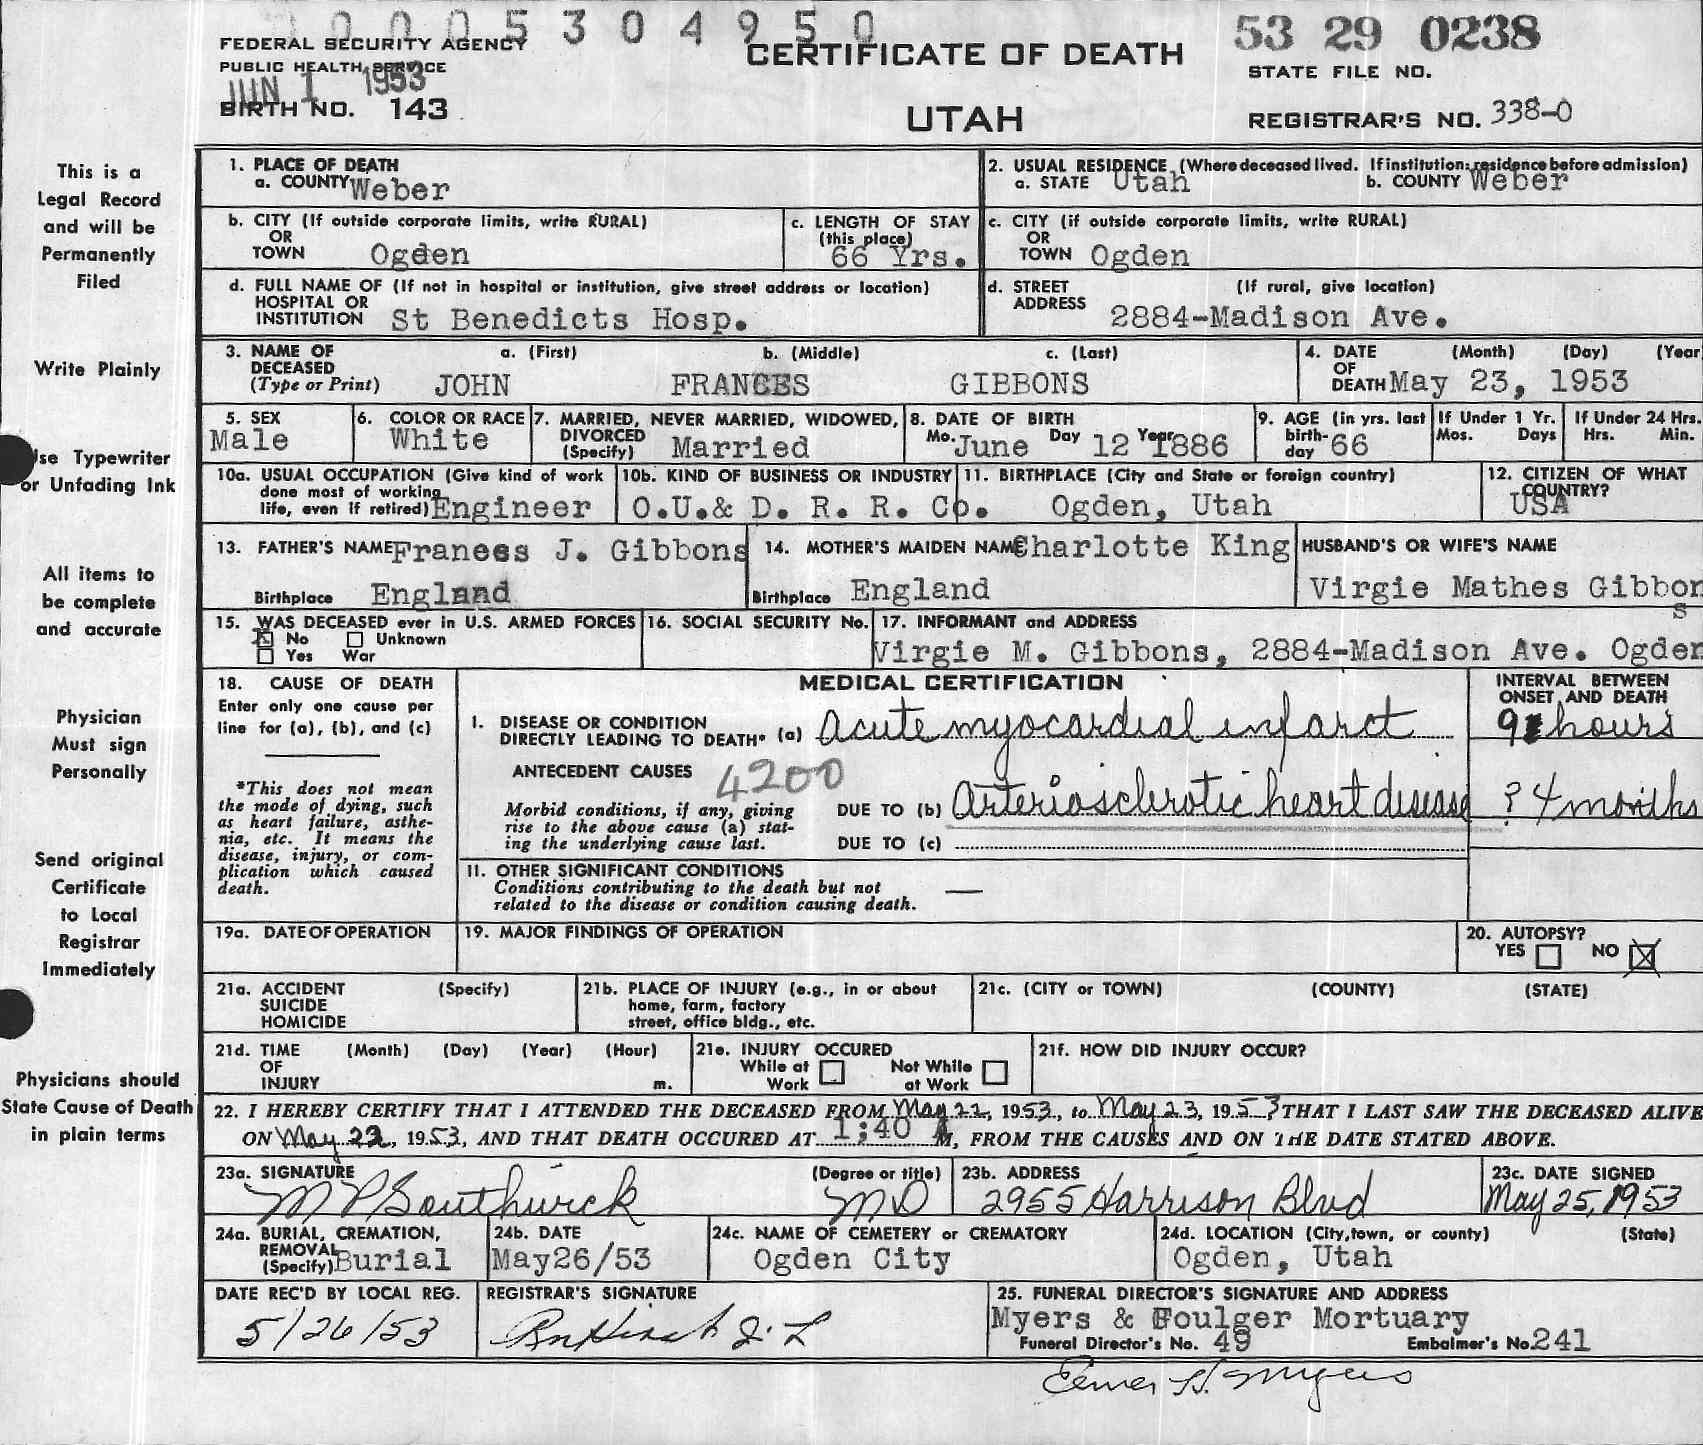 0005304950
53 29 0238
FEDERAL SECURITY AGENCY
CERTIFICATE OF DEATH
STATE FILE NO.
PUBLIC HEALTH SERVICE
JUN 1 1953
BIRTH NO. 143
UTAH
REGISTRAR'S NO. 338-0
This is a
Legal Record
and will be
Permanently
Filed
Write Plainly
Use Typewriter
or Unfading Ink
All items to
be complete
and accurate
Physician
Must sign
Personally
Send original
Certificate
to Local
Registrar
Immediately
Physicians should
State Cause of Death
in plain terms
1. PLACE OF DEATH
a. COUNTY Weber
2. USUAL RESIDENCE (Where deceased lived. If institution: residence before admission)
a. STATE Utah b. COUNTY Weber
b. CITY (If outside corporate limits, write RURAL)
OR
TOWN Ogden
c. LENGTH OF STAY
(this place)
66 Yrs.
c. CITY (if outside corporate limits, write RURAL)
OR
TOWN Ogden
d. FULL NAME OF (If not in hospital or institution, give street address or location)
HOSPITAL OR
INSTITUTION St Benedicts Hosp.
d. STREET (If rural, give location)
ADDRESS
2884-Madison Ave.
3. NAME OF a. (First) b. (Middle) c. (Last)
DECEASED
(Type or Print) JOHN FRANCES GIBBONS
4. DATE (Month) (Day) (Year
OF
DEATH May 23, 1953
5. SEX
Male
6. COLOR OR RACE
White
7. MARRIED, NEVER MARRIED, WIDOWED,
DIVORCED
(Specify) Married
8. DATE OF BIRTH
Mo. June Day 12 Year 1886
9. AGE (in yrs. last
birth-
day 66
If Under 1 Yr.
Mos. Days
If Under 24 Hrs.
Hrs. Min.
10a. USUAL OCCUPATION (Give kind of work
done most of working
life, even if retired) Engineer
10b. KIND OF BUSINESS OR INDUSTRY
O.U.& D. R. R. Co.
11. BIRTHPLACE (City and State or foreign country)
Ogden, Utah
12. CITIZEN OF WHAT
COUNTRY?
USA
13. FATHER'S NAME Frances J. Gibbons
Birthplace England
14. MOTHER'S MAIDEN NAME Charlotte King
Birthplace England
HUSBAND'S OR WIFE'S NAME
Virgie Mathes Gibbon
s
15. WAS DECEASED ever in U.S. ARMED FORCES
No Unknown
Yes War
16. SOCIAL SECURITY No.
17. INFORMANT and ADDRESS
Virgie M. Gibbons, 2884-Madison Ave. Ogden
18. CAUSE OF DEATH
Enter only one cause per
line for (a), (b), and (c)
*This does not mean
the mode of dying, such
as heart failure, asthe-
nia, etc. It means the
disease, injury, or com-
plication which caused
death.
MEDICAL CERTIFICATION
INTERVAL BETWEEN
ONSET AND DEATH
1. DISEASE OR CONDITION
DIRECTLY LEADING TO DEATH* (a) Acute myocardial infarct 9 hours
ANTECEDENT CAUSES 4200
Morbid conditions, if any, giving
rise to the above cause (a) stat-
ing the underlying cause last.
DUE TO (b) Arteriosclerotic heart disease ? 4 months
DUE TO (c)
11. OTHER SIGNIFICANT CONDITIONS
Conditions contributing to the death but not —
related to the disease or condition causing death.
19a. DATE OF OPERATION
19. MAJOR FINDINGS OF OPERATION
20. AUTOPSY?
YES NO
21a. ACCIDENT (Specify)
SUICIDE
HOMICIDE
21b. PLACE OF INJURY (e.g., in or about
home, farm, factory
street, office bldg., etc.
21c. (CITY or TOWN) (COUNTY) (STATE)
21d. TIME (Month) (Day) (Year) (Hour)
OF
INJURY m.
21e. INJURY OCCURED
While at Not While
Work at Work
21f. HOW DID INJURY OCCUR?
22. I HEREBY CERTIFY THAT I ATTENDED THE DECEASED FROM May 22, 1953, to May 23, 1953 THAT I LAST SAW THE DECEASED ALIVE
ON May 22, 1953, AND THAT DEATH OCCURED AT 1:40 AM, FROM THE CAUSES AND ON THE DATE STATED ABOVE.
23a. SIGNATURE (Degree or title)
M P Southwick MD
23b. ADDRESS
2955 Harrison Blvd
23c. DATE SIGNED
May 25, 1953
24a. BURIAL, CREMATION,
REMOVAL
(Specify) Burial
24b. DATE
May26/53
24c. NAME OF CEMETERY or CREMATORY
Ogden City
24d. LOCATION (City, town, or county) (State)
Ogden, Utah
DATE REC'D BY LOCAL REG.
5/26/53
REGISTRAR'S SIGNATURE
25. FUNERAL DIRECTOR'S SIGNATURE AND ADDRESS
Myers & Foulger Mortuary
Funeral Director's No. 49 Embalmer's No. 241
Elmer H. Myers